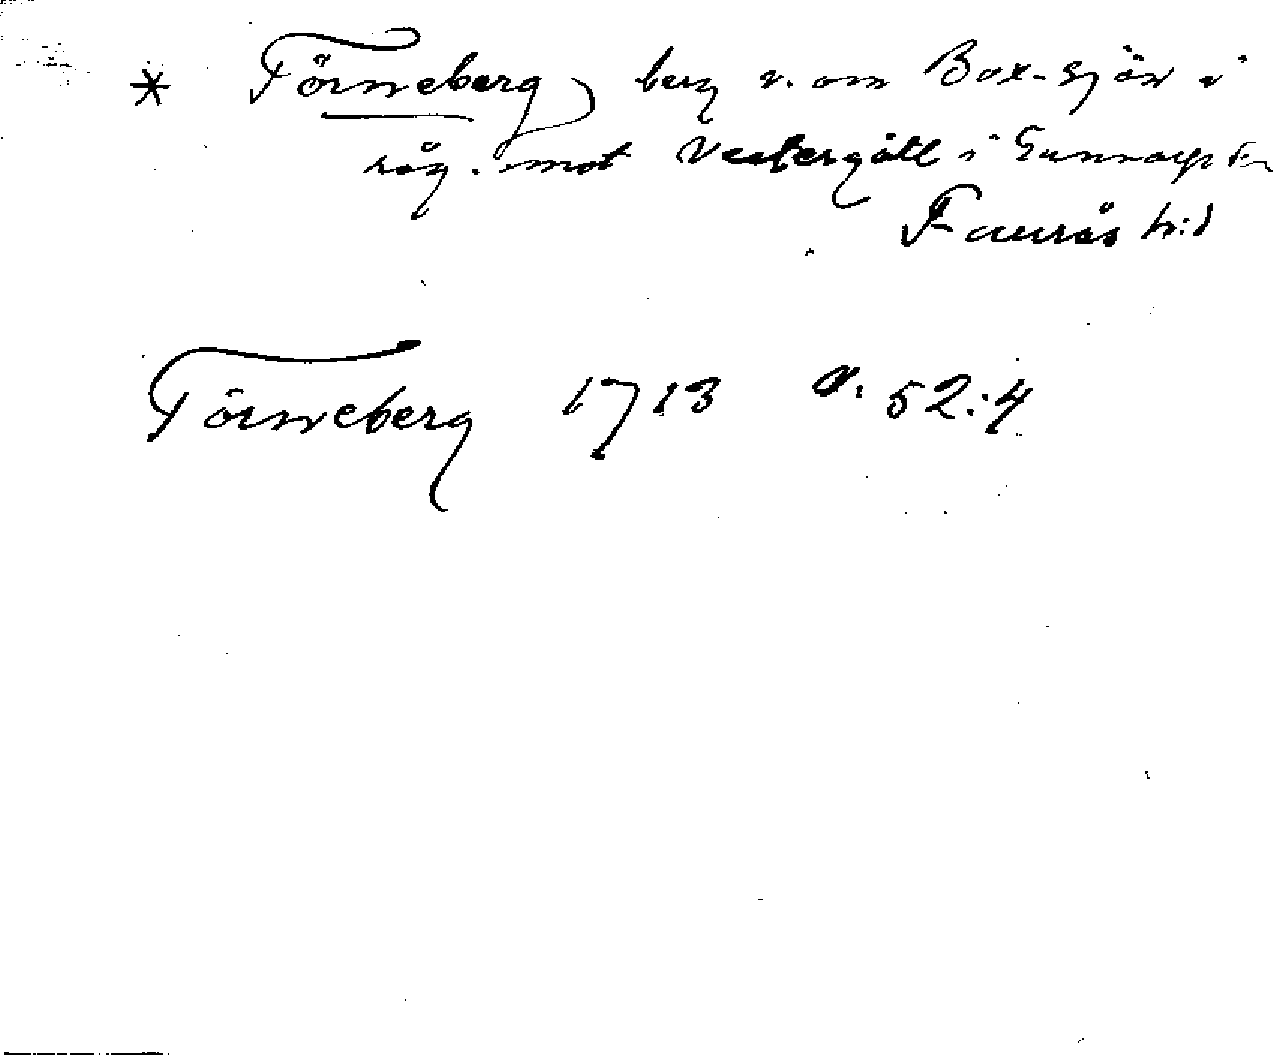 * Törneberg, berg v. om Box-sjön i
råg. mot Vestergötl i Gunnarps sn
Faurås h:d
Törneberg 1713 a. 52:4